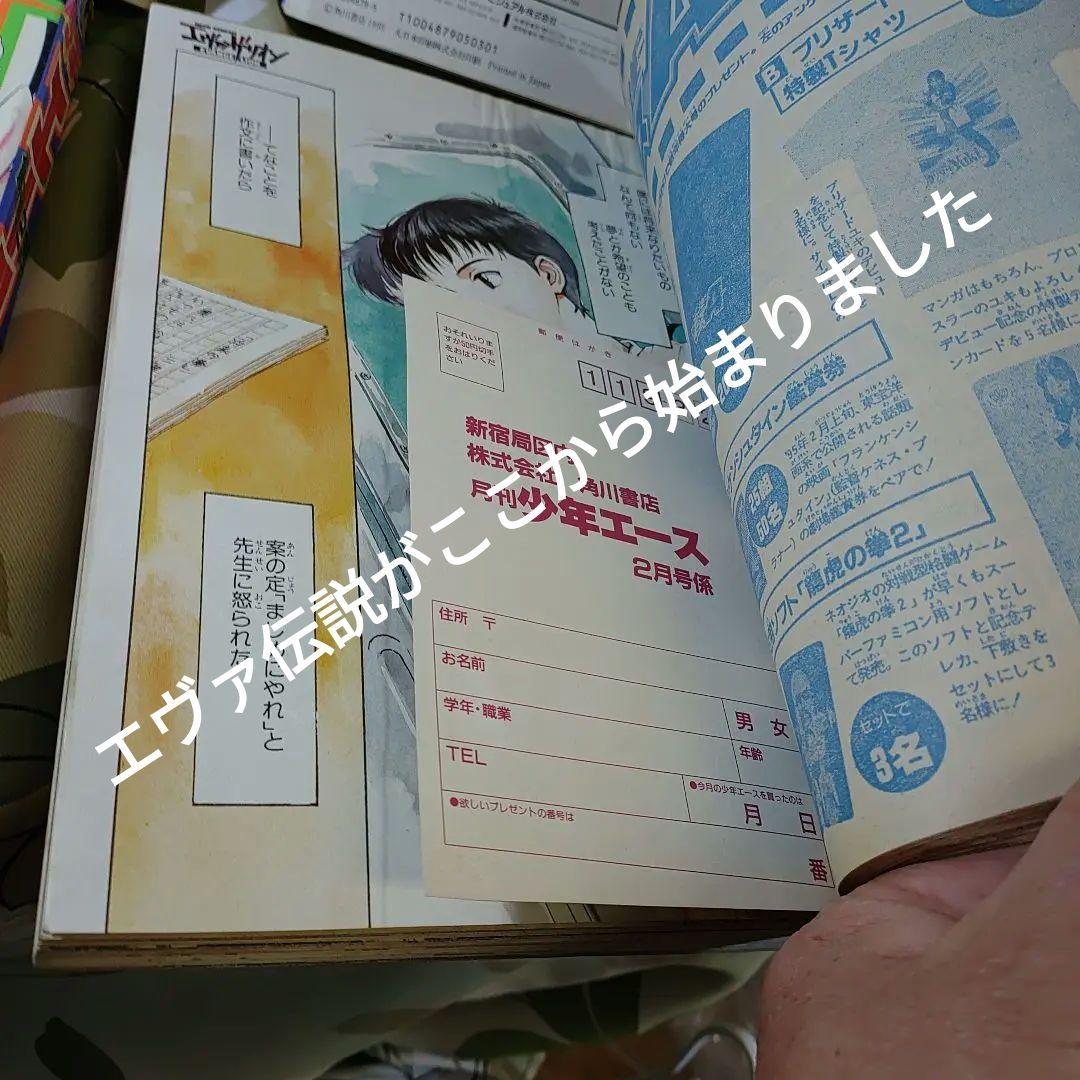 エヴァ伝説がここから始まりました
©角川書店 1995
T1004879050301
Printed in Japan
――てなことを
作文に書いたら
なんて何もない
夢とか希望のことも
考えたことがない
案の定「まじめにやれ」と
先生に怒られた
郵便はがき
おそれいりま
すが50円切手
をおはりくだ
さい
新宿局区内
株式会社 角川書店
月刊少年エース
2月号係
住所 〒
お名前
学年・職業
男 女
年齢
TEL
●今月の少年エースを買ったのは
月 日
●欲しいプレゼントの番号は
番
B ブリザード
特製Tシャツ
マンガはもちろん、プロ
スラーのユキもよろしく
デビュー記念の特製テ
ンカードを5名様に
シュタイン鑑賞券
25組
50名
'95年2月上旬、東宝洋
画系で公開される話題
の映画「フランケンシ
ュタイン」(監督ケネス・ブ
ラナー)の劇場鑑賞券をペアで!
ソフト「龍虎の拳2」
ネオジオの対戦型格闘ゲーム
「龍虎の拳2」が早くもスー
パーファミコン用ソフトとし
て発売。このソフトと記念テ
レカ、下敷きを
セットにして3
名様に!
セットで
3名